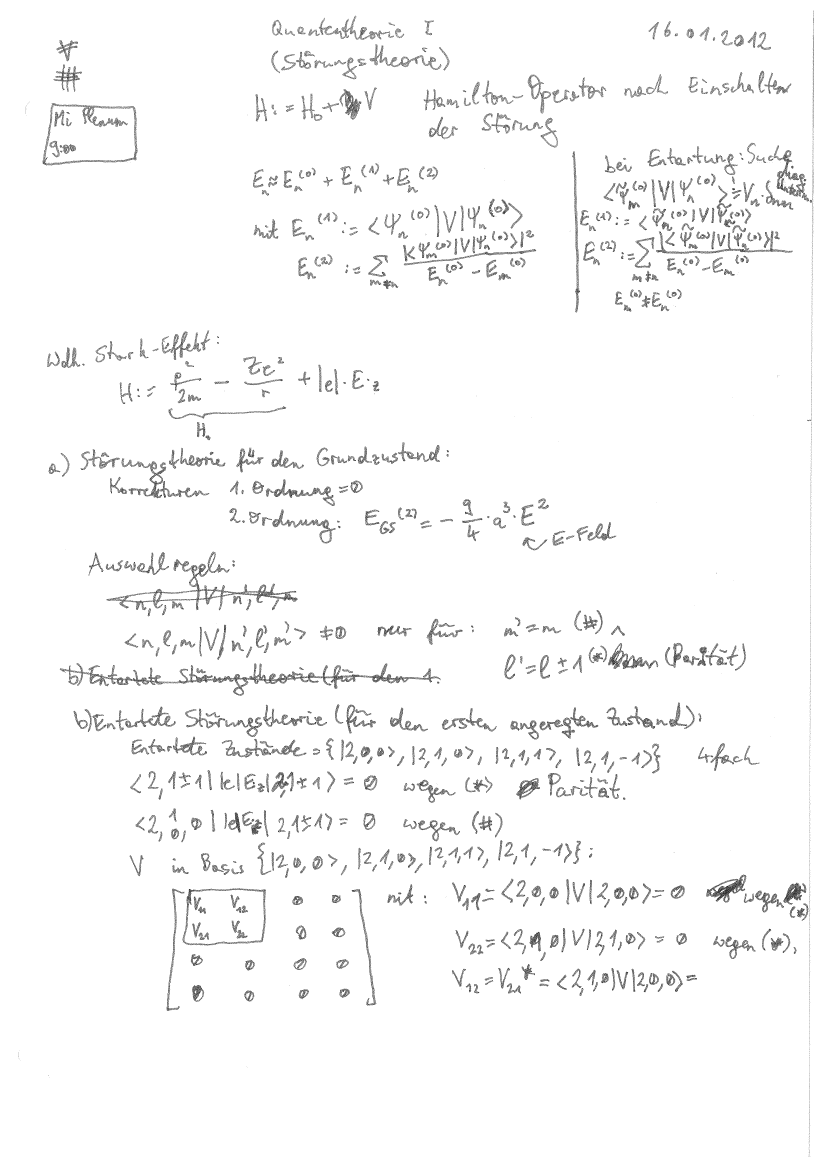 Quantentheorie I
16.01.2012
(Störungstheorie)
Mi Plenum
9:00
H := H₀ + V Hamilton-Operator nach Einschalten
der Störung
E_n ≈ E_n^(0) + E_n^(1) + E_n^(2)
mit E_n^(1) := <Ψ_n^(0)|V|Ψ_n^(0)>
E_n^(2) := ∑_{m≠n} |<Ψ_m^(0)|V|Ψ_n^(0)>|² / (E_n^(0) - E_m^(0))
bei Entartung: Suche
<Ψ̃_m^(0)|V|Ψ̃_n^(0)> != V_n · δ_mn
E_n^(1) := <Ψ̃_n^(0)|V|Ψ̃_n^(0)>
E_n^(2) := ∑_{m≠n} |<Ψ̃_m^(0)|V|Ψ̃_n^(0)>|² / (E_n^(0) - E_m^(0))
E_m^(0) ≠ E_n^(0)
Wdh. Stark-Effekt:
H := p²/2m - Ze²/r + |e|·E·z
H₀
a) Störungstheorie für den Grundzustand:
Korrekturen 1. Ordnung = 0
2. Ordnung: E_GS^(2) = - 9/4 · a³ · E²
E-Feld
Auswahlregeln:
<n,l,m|V|n',l',m
<n,l,m|V|n',l',m'> ≠ 0 nur für: m'=m (#) ∧
l'=l±1 (*) (Parität)
b) Entartete Störungstheorie (für den 1.
b) Entartete Störungstheorie (für den ersten angeregten Zustand):
Entartete Zustände = {|2,0,0>, |2,1,0>, |2,1,1>, |2,1,-1>} 4-fach
<2,1±1||e|Ez|2,1±1> = 0 wegen (*) Parität.
<2,1/0,0||e|Ez|2,1±1> = 0 wegen (#)
V in Basis {|2,0,0>, |2,1,0>, |2,1,1>, |2,1,-1>}:
V₁₁ V₁₂ 0 0
V₂₁ V₂₂ 0 0
0 0 0 0
0 0 0 0
mit: V₁₁ = <2,0,0|V|2,0,0> = 0 wegen (*)
V₂₂ = <2,1,0|V|2,1,0> = 0 wegen (*),
V₁₂ = V₂₁* = <2,1,0|V|2,0,0> =